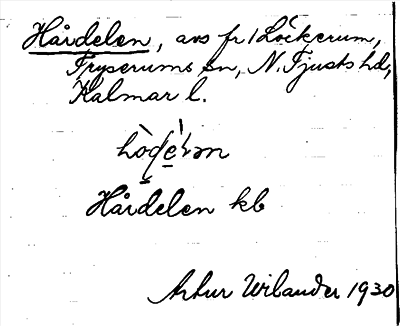 Hårdelen, avs fr Löckerum,
Tryserums sn, N. Tjusts hd,
Kalmar l.
Hårdelen kb
Artur Wilander 1930